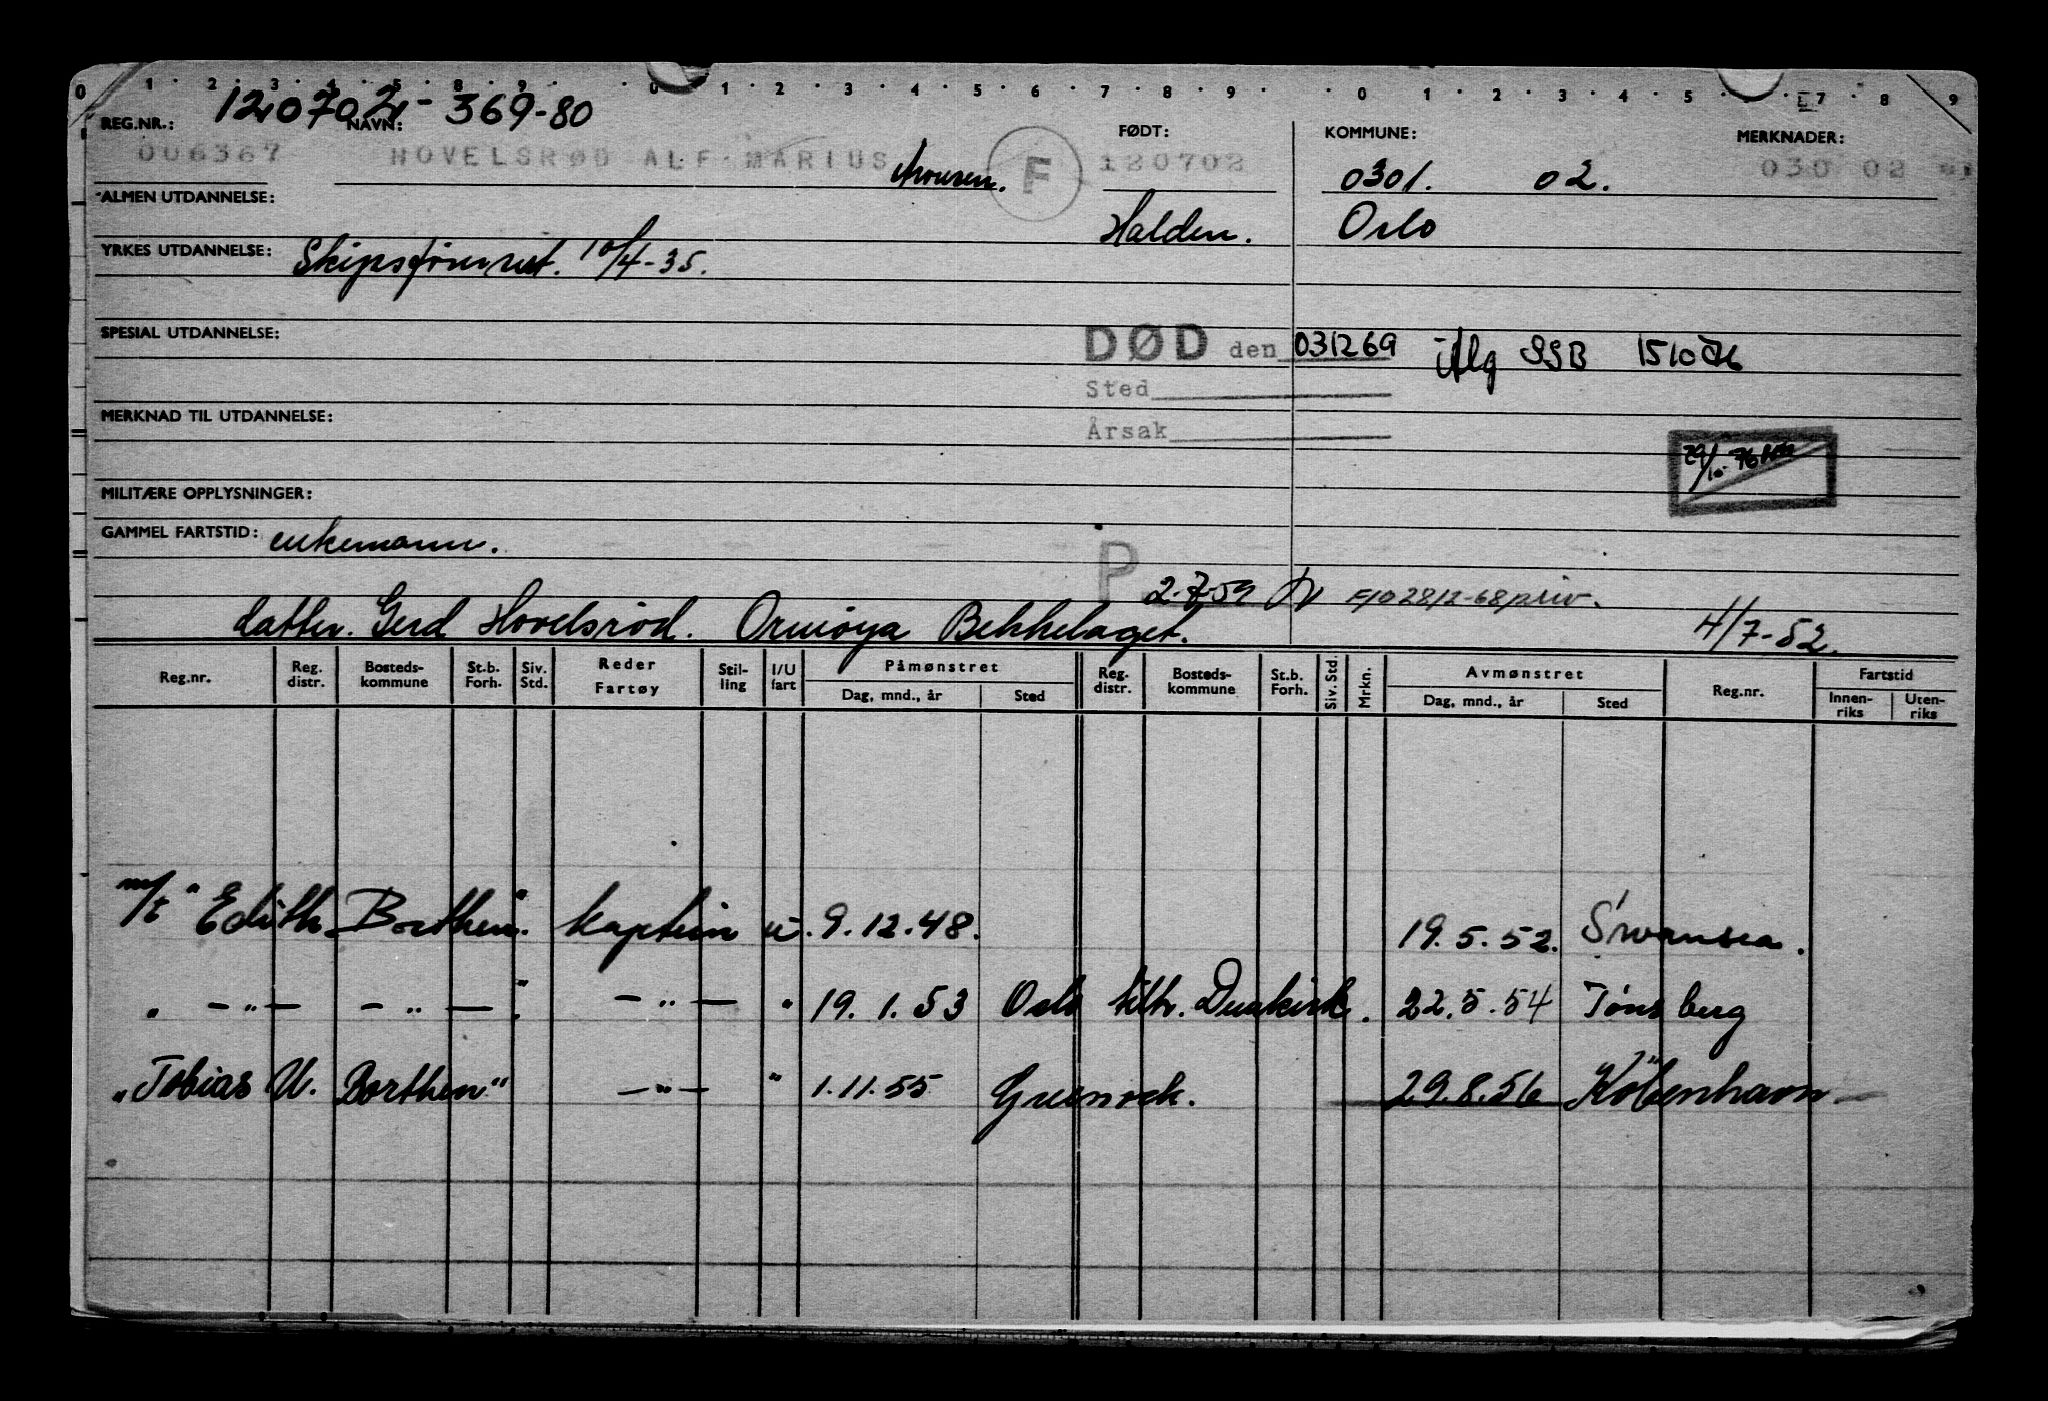 0 1 2 3 4 5 8 9 0 1 2 3 4 5 6 7 8 9 0 1 2 3 4 5 7 8 9
120702-369-80
REG.NR.: NAVN: FØDT: KOMMUNE: MERKNADER:
006367 HOVELSRØD ALF MARIUS F 120702 0301. 02. 030 02
ALMEN UTDANNELSE: Halden. Oslo
YRKES UTDANNELSE: Skipsførerut. 10/4-35.
SPESIAL UTDANNELSE:
DØD den 031269 SSB
Sted
MERKNAD TIL UTDANNELSE:
Årsak
MILITÆRE OPPLYSNINGER:
GAMMEL FARTSTID: enkemann.
P 2-7-59
datter. Gerd Hovelsrød. Ormøya Bekkelaget. 4/7-52.
Reg.nr. Reg. distr. Bosteds- kommune St.b. Forh. Siv. Std. Reder Fartøy Stil- ling I/U fart Påmønstret Dag, mnd., år Sted Reg. distr. Bosteds- kommune St.b. Forh. Siv. Std. Mrkn. Avmønstret Dag, mnd., år Sted Reg.nr. Fartstid Innen- riks Uten- riks
m/t "Edith Borthen". kaptein u. 9.12.48. 19.5.52. Swansea.
" — " — — " — " — " — " 19.1.53 Oslo tiltr. Dunkirk. 22.5.54 Tønsberg
"Tobias U. Borthen" — " — " 1.11.55 Greenock. 29.8.56 København